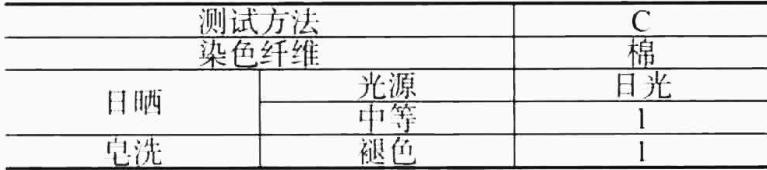 测试方法 C
染色纤维 棉
日晒 光源 日光
中等 1
皂洗 褪色 1